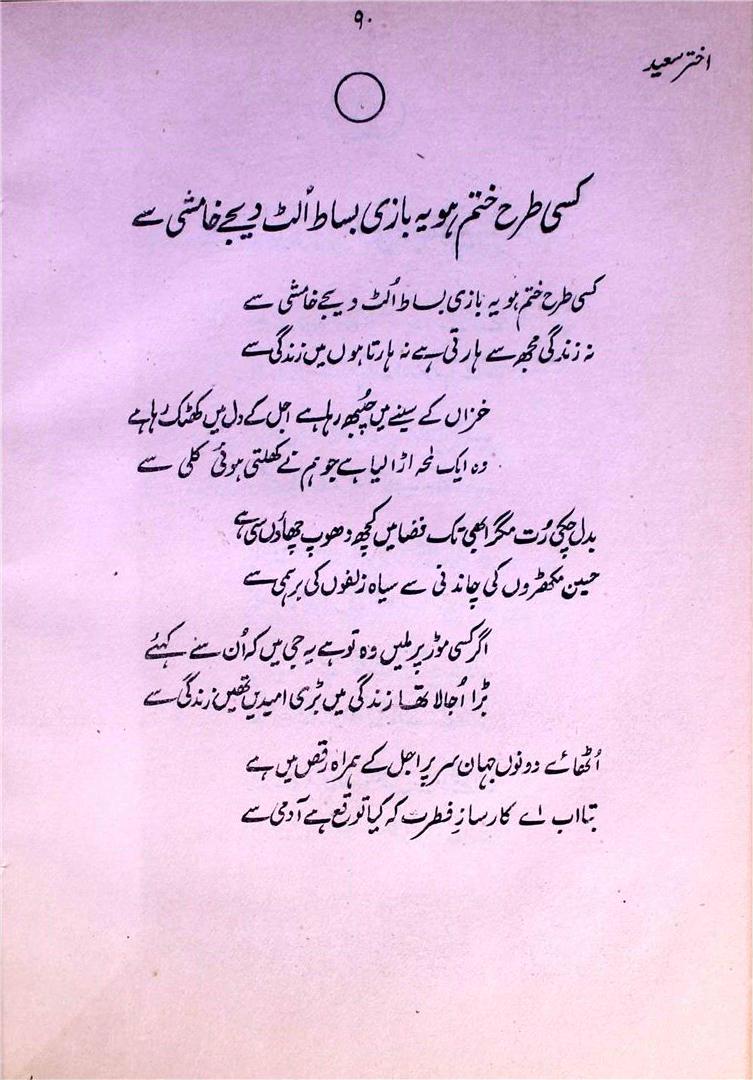 ۹۰
اختر سعید
کسی طرح ختم ہو یہ بازی بساط اُلٹ دیجے خامشی سے
کسی طرح ختم ہو یہ بازی بساط اُلٹ دیجے خامشی سے
نہ زندگی مجھ سے ہارتی ہے نہ ہارتا ہوں میں زندگی سے
خزاں کے سینے میں چُبھ رہا ہے اجل کے دل میں کھٹک رہا ہے
وہ ایک لمحہ اڑا لیا ہے جو ہم نے کھلتی ہوئی کلی سے
بدل چکی رُت مگر ابھی تک فضا میں کچھ دھوپ چھاؤں سی ہے
حسین مکھڑوں کی چاندنی سے سیاہ زلفوں کی برہمی سے
اگر کسی موڑ پر ملیں وہ تو ہے یہ جی میں کہ اُن سے کہئے
بڑا اُجالا تھا زندگی میں بڑی امیدیں تھیں زندگی سے
اُٹھائے دونوں جہان سر پر اجل کے ہمراہ رقص میں ہے
بتا اب اے کارسازِ فطرت کہ کیا توقع ہے آدمی سے